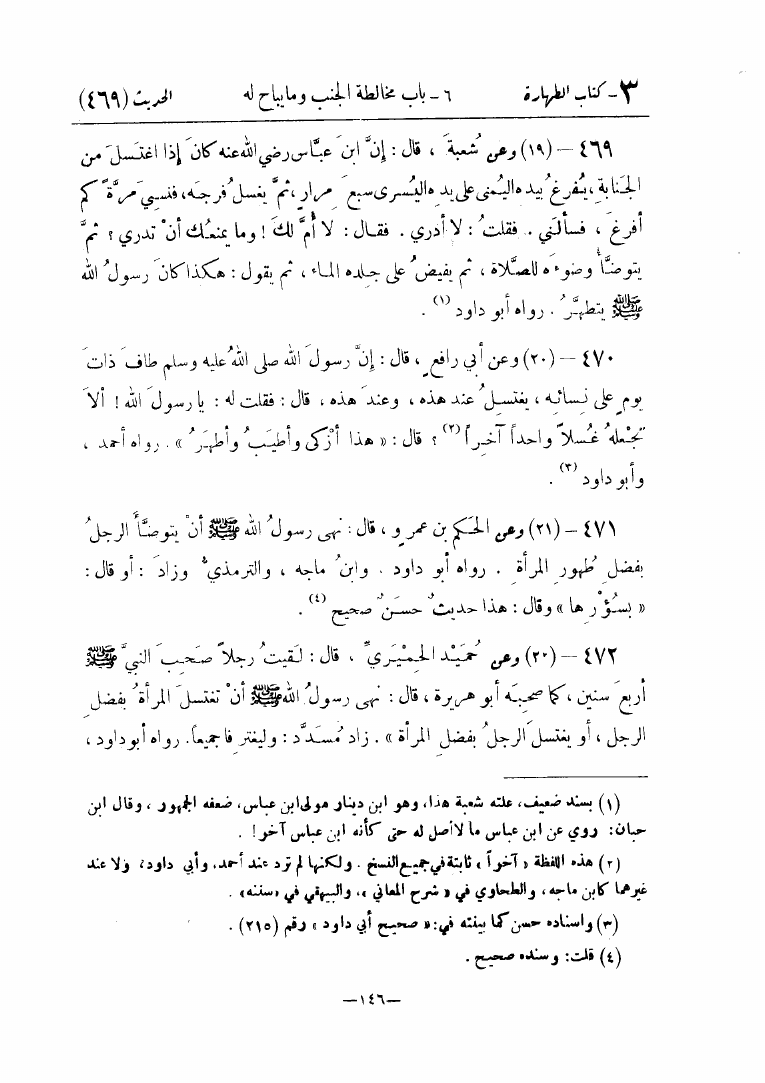 ٣ - كتاب الطهارة ٦ - باب مخالطة الجنب وما يباح له الحديث (٤٦٩)
٤٦٩ – (١٩) وعن شُعبةَ ، قال : إِنَّ ابنَ عبَّاس رضي الله عنه كانَ إِذا اغتسلَ من
الجنابةِ ، يُفرغُ بيده اليُمنى على يدِه اليُسرى سبعَ مرارٍ ، ثمَّ يغسلُ فرجَه ، فنسيَ مرَّةً كم
أفرغَ ، فسألني . فقلتُ : لا أدري . فقال : لا أُمَّ لكَ ! وما يمنعُك أنْ تدري ؟ ثمَّ
يتوضَّأُ وضوءَه للصَّلاة ، ثم يفيضُ على جلده الماء ، ثم يقول : هكذا كانَ رسولُ الله
ﷺ يتطهَّرُ . رواه أبو داود (١) .
٤٧٠ – (٢٠) وعن أبي رافعٍ ، قال : إِنَّ رسولَ الله صلى اللهُ عليه وسلم طافَ ذاتَ
يومٍ على نسائه ، يغتسلُ عند هذه ، وعندَ هذه ، قال : فقلت له : يا رسولَ الله ! ألاَ
تجْعلهُ غُسلاً واحداً آخراً (٢) ؟ قال : « هذا أزْكى وأطيَبُ وأطهَرُ » . رواه أحمد ،
وأبو داود (٣) .
٤٧١ – (٢١) وعن الحَكم بن عمرٍو ، قال : نهى رسولُ الله ﷺ أنْ يتوضَّأَ الرجلُ
بفضلِ طُهورِ المرأةِ . رواه أبو داود . وابنُ ماجه ، والترمذيُّ وزادَ : أو قال :
« بسُؤْرِها » وقال : هذا حديثٌ حسَنٌ صحيح (٤) .
٤٧٢ – (٢٠) وعن حُمَيْد الحِمْيَريِّ ، قال : لَقيتُ رجلاً صَحِبَ النبيَّ ﷺ
أربعَ سنين ، كما صحِبَه أبو هريرة ، قال : نهى رسولُ الله ﷺ أنْ تغتسلَ المرأةُ بفضلِ
الرجل ، أو يغتسلَ الرجلُ بفضلِ المرأة » . زاد مُسَدَّد : وليغترِفا جميعاً . رواه أبو داود ،
(١) بسند ضعيف، علته شعبة هذا، وهو ابن دينار مولى ابن عباس، ضعفه الجمهور ، وقال ابن
حبان: روي عن ابن عباس ما لا أصل له حتى كأنه ابن عباس آخر! .
(٢) هذه اللفظة « آخراً » ثابتة في جميع النسخ . ولكنها لم ترد عند أحمد، وأبي داود، ولا عند
غيرهما كابن ماجه، والطحاوي في « شرح المعاني »، والبيهقي في «سننه» .
(٣) واسناده حسن كما بينته في: « صحيح أبي داود » رقم (٢١٥) .
(٤) قلت: وسنده صحيح .
—١٤٦—